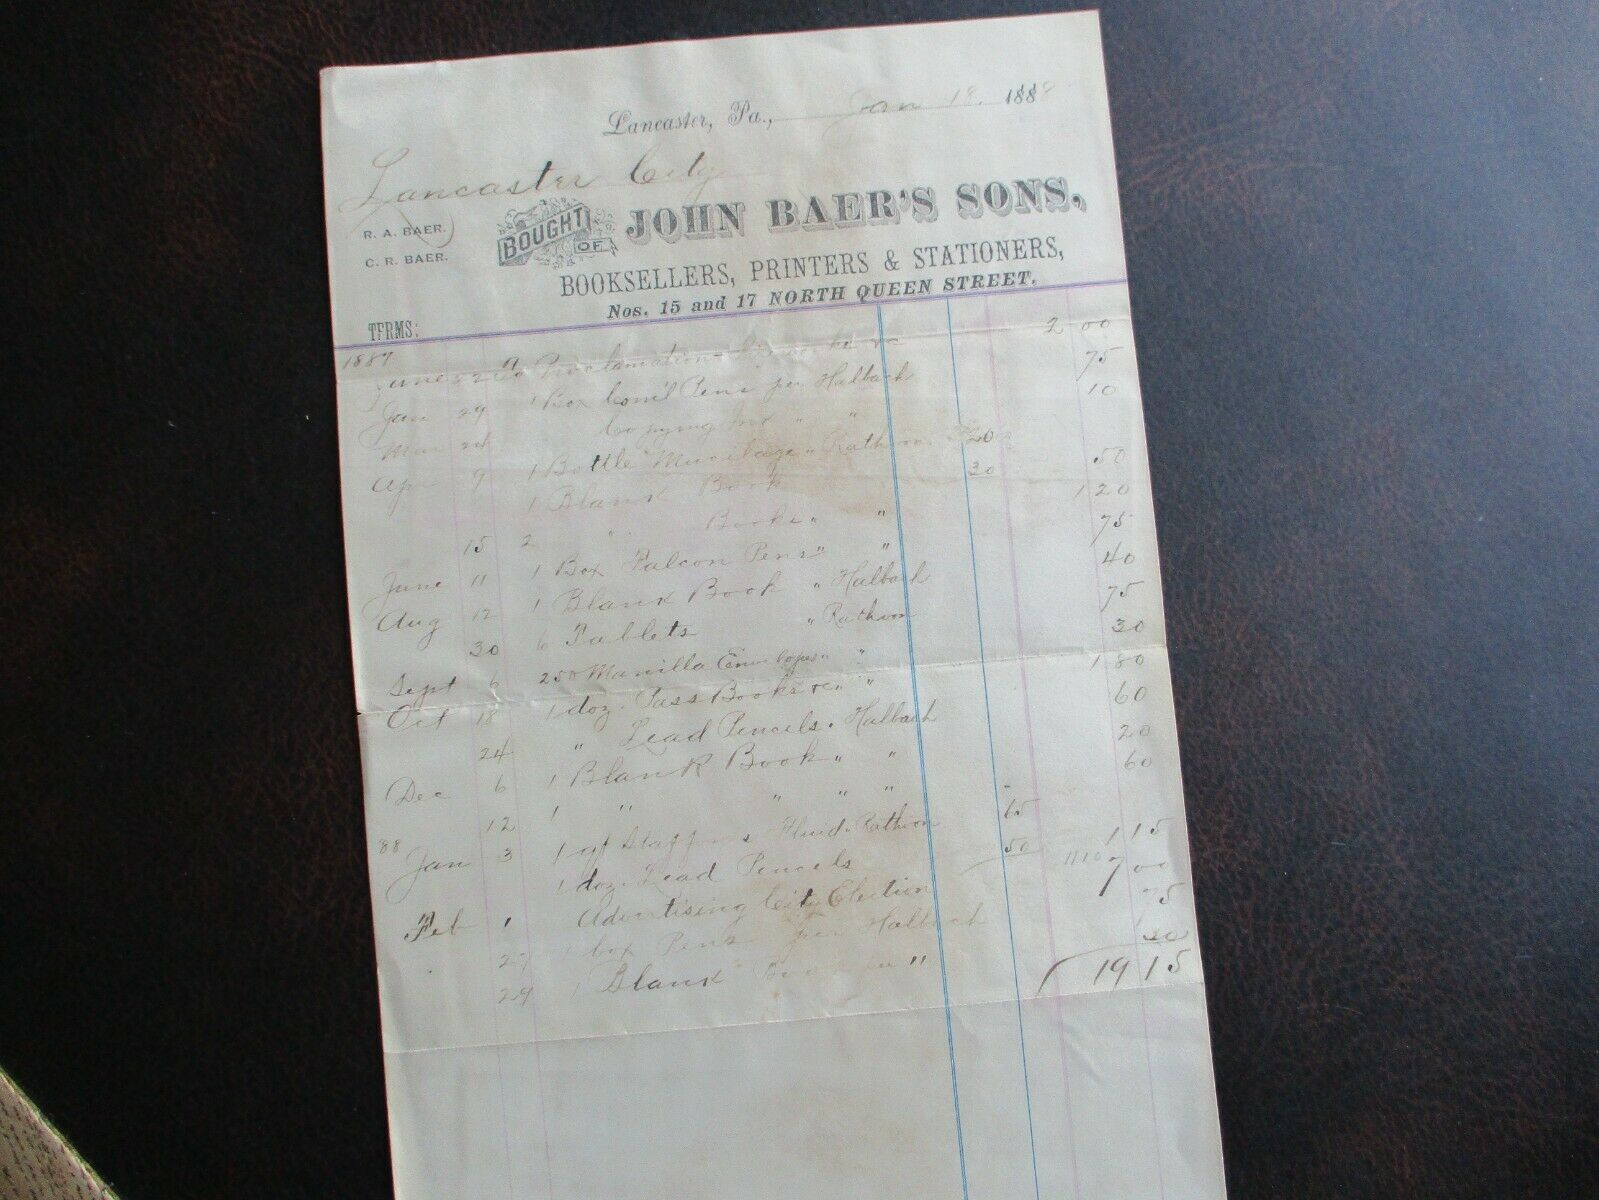 Lancaster, Pa., Jan 18, 1888
Lancaster City
R. A. BAER.
C. R. BAER.
BOUGHT OF JOHN BAER'S SONS,
BOOKSELLERS, PRINTERS & STATIONERS,
Nos. 15 and 17 NORTH QUEEN STREET.
TERMS:
1887
June 22 Proclamation 2 00
Jan 29 1 Box Com'l Pens per Halbach 75
Mar 24 Copying Ink " " 10
Apr 9 1 Bottle Mucilage " Rathvon 20
1 Blank Book 30 50
15 2 " Books " " 1 20
June 11 1 Box Falcon Pens " " 75
Aug 12 1 Blank Book " Halbach 40
30 6 Tablets " Rathvon 75
Sept 6 250 Manilla Envelopes " " 30
Oct 18 1 doz. Pass Books " " 1 80
24 " Lead Pencils " Halbach 60
Dec 6 1 Blank Book " " 20
12 1 " " " " 60
88
Jan 3 1 qt Stafford's Fluid " Rathvon 65
1 doz. Lead Pencils 50 1 15
11 10
Feb 1 Advertising City Election 7 00
27 1 box Pens per Halbach 75
29 1 Blank Book per " 30
19 15